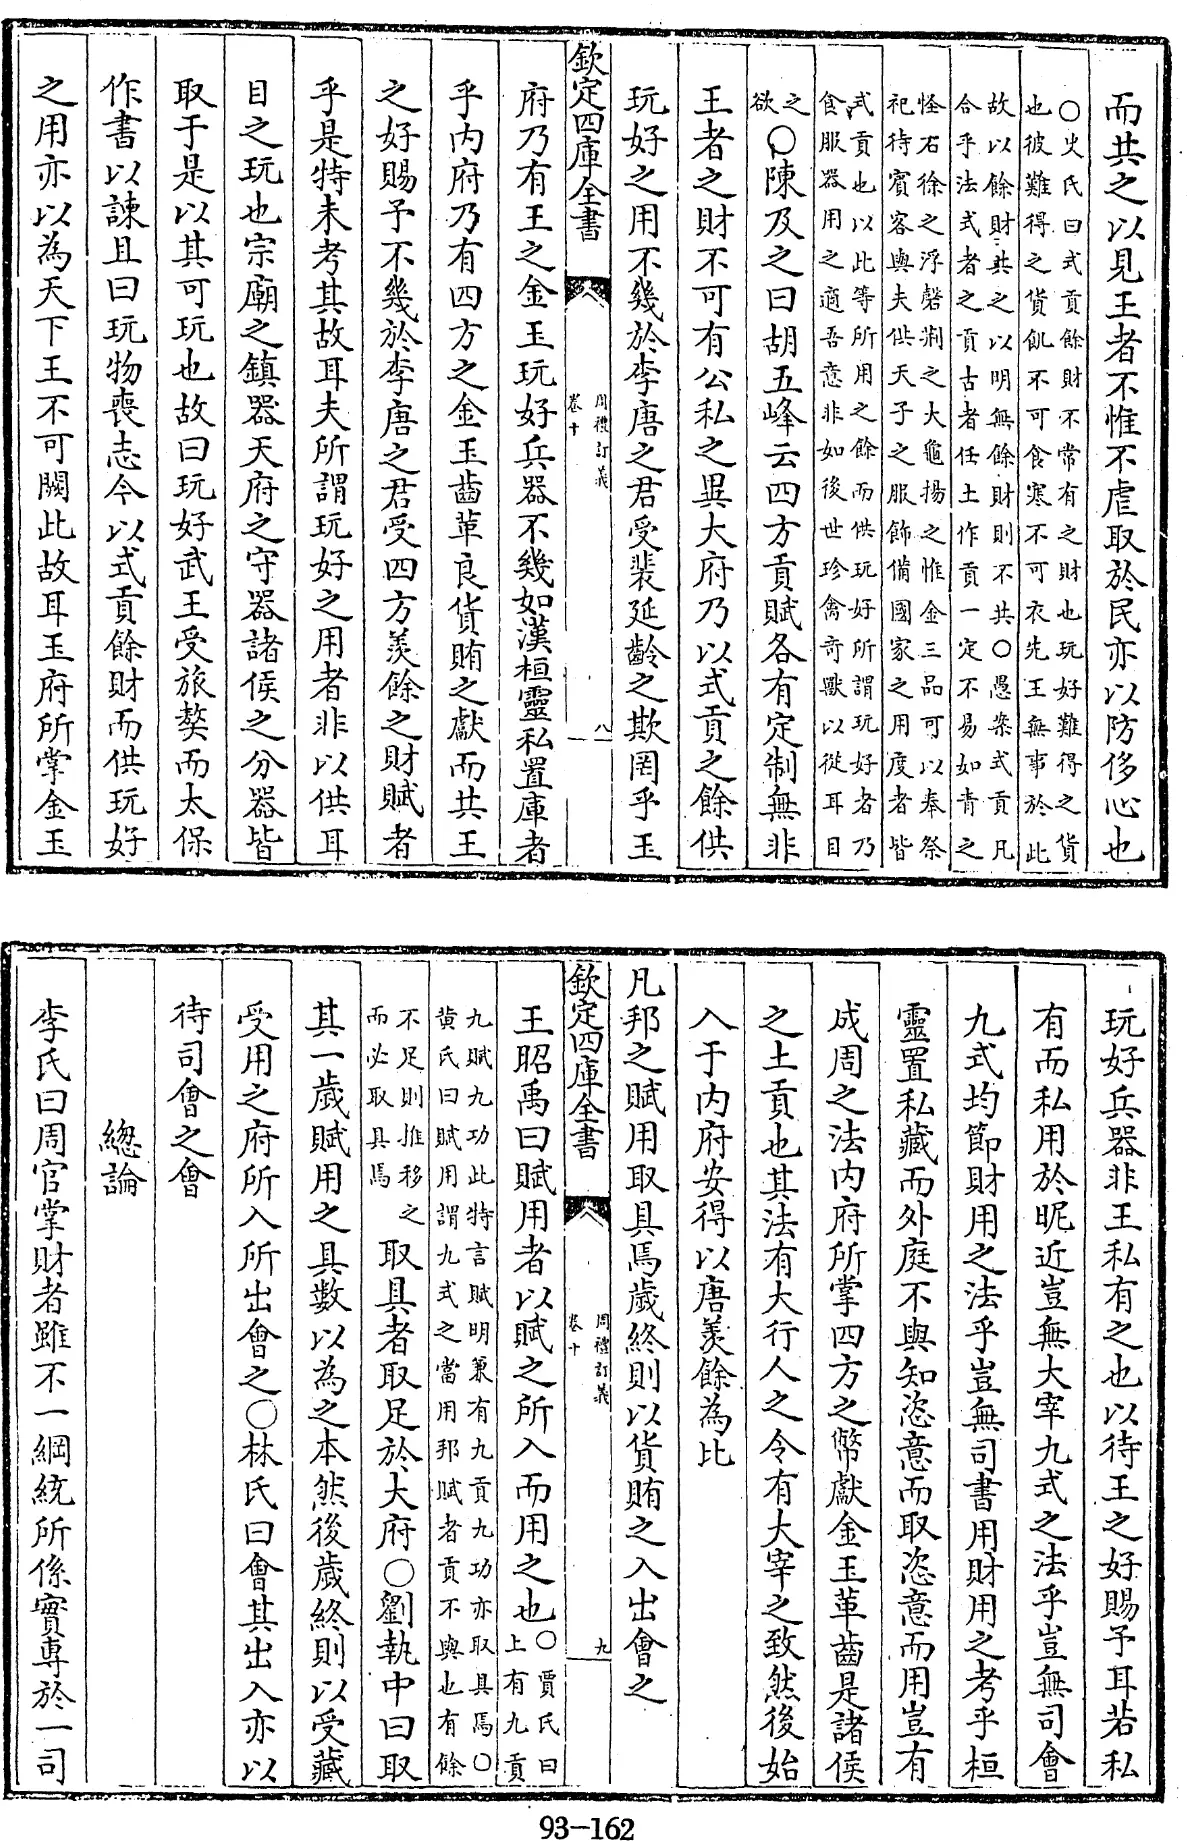 而共之以見王者不惟不虐取於民亦以防侈心也
〇史氏曰式貢餘財不常有之財也玩好難得之貨
也彼難得之貨飢不可食寒不可衣先王無事於此
故以餘財共之以明無餘財則不共〇愚案式貢凡
合乎法式者之貢古者任土作貢一定不易如青之
怪石徐之浮磬荆之大龜揚之惟金三品可以奉祭
祀待賓客與夫供天子之服飾備國家之用度者皆
式貢也以此等所用之餘而供玩好所謂玩好者乃
食服器用之適吾意非如後世珍禽奇獸以從耳目
之欲〇陳及之曰胡五峰云四方貢賦各有定制無非
王者之財不可有公私之異大府乃以式貢之餘供
玩好之用不幾於李唐之君受裴延齡之欺罔乎玉
欽定四庫全書
周禮訂義
卷十
八
府乃有王之金玉玩好兵器不幾如漢桓靈私置庫者
乎内府乃有四方之金玉齒革良貨賄之獻而共王
之好賜予不幾於李唐之君受四方羨餘之財賦者
乎是特未考其故耳夫所謂玩好之用者非以供耳
目之玩也宗廟之鎮器天府之守器諸侯之分器皆
取于是以其可玩也故曰玩好武王受旅獒而太保
作書以諫且曰玩物喪志今以式貢餘財而供玩好
之用亦以為天下王不可闕此故耳玉府所掌金玉
玩好兵器非王私有之也以待王之好賜予耳若私
有而私用於昵近豈無大宰九式之法乎豈無司會
九式均節財用之法乎豈無司書用財用之考乎桓
靈置私藏而外庭不與知恣意而取恣意而用豈有
成周之法内府所掌四方之幣獻金玉革齒是諸侯
之土貢也其法有大行人之令有大宰之致然後始
入于内府安得以唐羨餘為比
凡邦之賦用取具焉歲終則以貨賄之入出會之
欽定四庫全書
周禮訂義
卷十
九
王昭禹曰賦用者以賦之所入而用之也〇賈氏曰
上有九貢
九賦九功此特言賦明兼有九貢九功亦取具焉〇
黄氏曰賦用謂九式之當用邦賦者貢不與也有餘
不足則推移之
而必取具焉
取具者取足於大府〇劉執中曰取
其一歲賦用之具數以為之本然後歲終則以受藏
受用之府所入所出會之〇林氏曰會其出入亦以
待司會之會
緫論
李氏曰周官掌財者雖不一綱統所係實專於一司
93-162